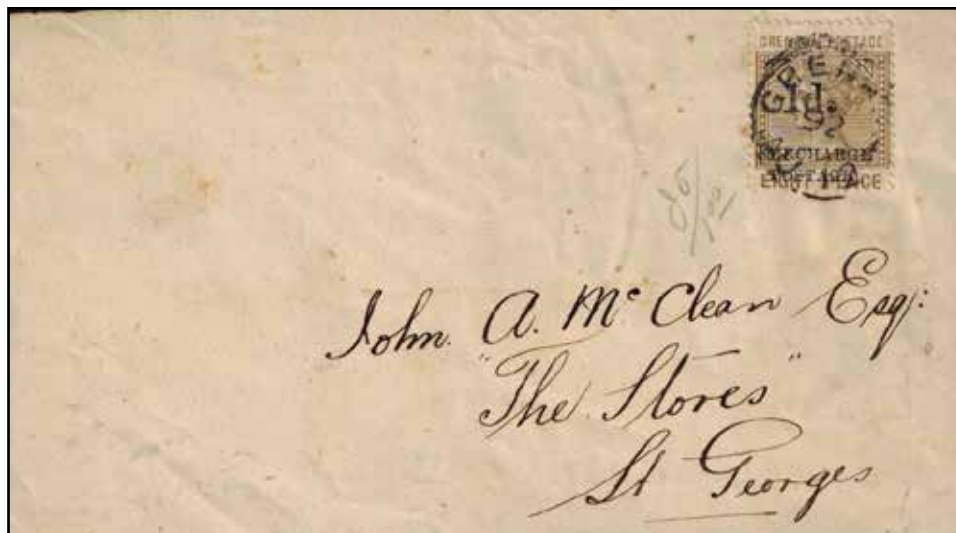 GRENADA POSTAGE
1d.
SURCHARGE
POSTAGE
EIGHT PENCE
John A. Mc Clean Esq:
"The Stores"
St Georges